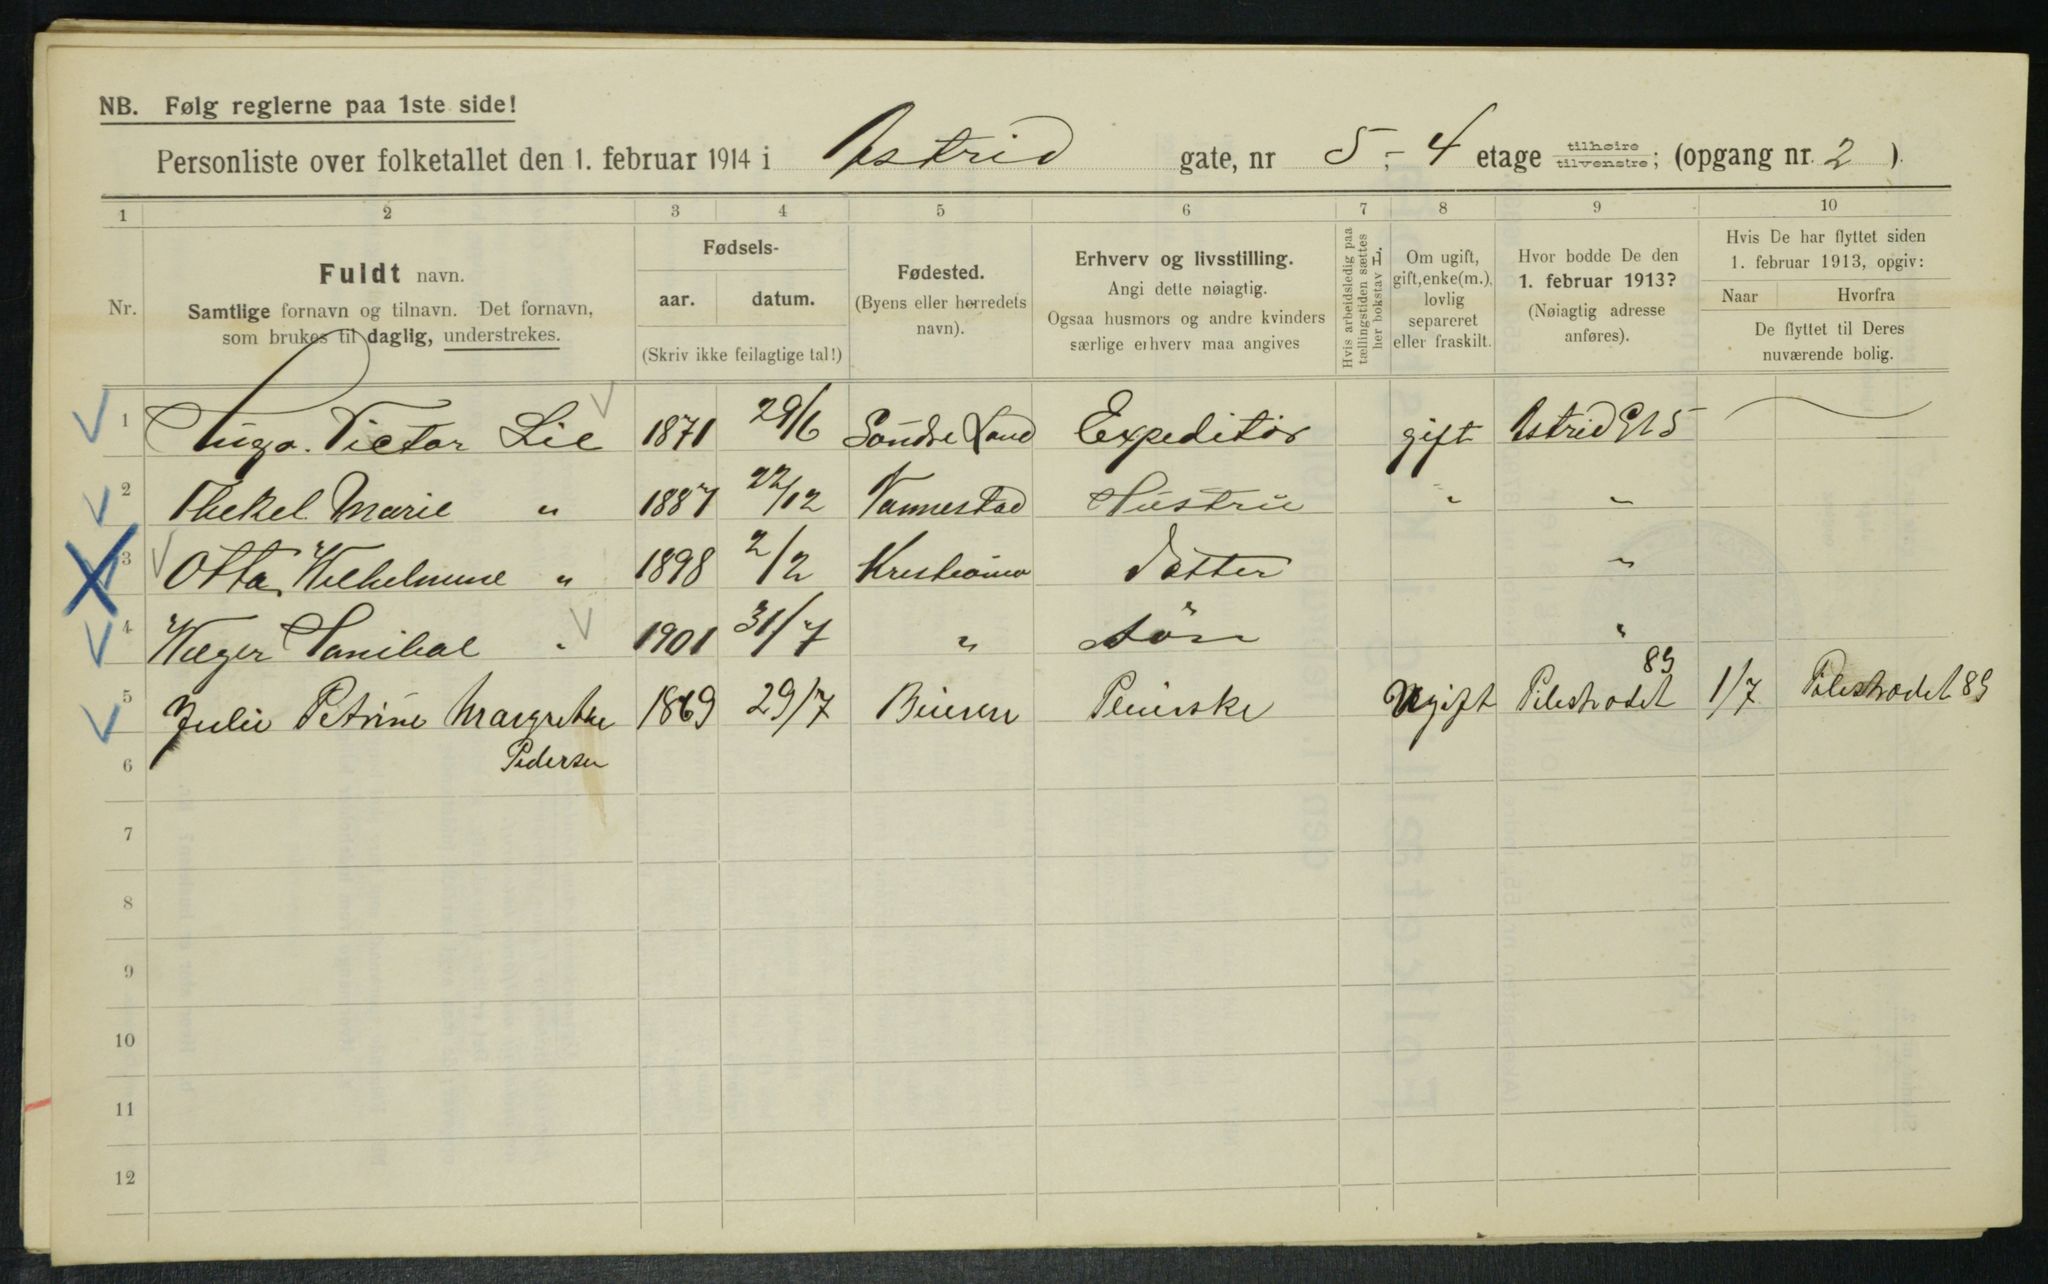 NB. Følg reglerne paa 1ste side!
Personliste over folketallet den 1. februar 1914 i Astrid gate, nr 5,- 4 etage tilhøire tilvenstre; (opgang nr. 2 ).
1 2 3 4 5 6 7 8 9 10
Nr.
Fuldt navn.
Samtlige fornavn og tilnavn. Det fornavn,
som brukes til daglig, understrekes.
Fødsels-
aar. datum.
(Skriv ikke feilagtige tal!)
Fødested.
(Byens eller herredets
navn).
Erhverv og livsstilling.
Angi dette nøiagtig.
Ogsaa husmors og andre kvinders
særlige erhverv maa angives
Hvis arbeidsledig paa
tællingstiden sættes
her bokstav L.
Om ugift,
gift, enke(m.),
lovlig
separeret
eller fraskilt.
Hvor bodde De den
1. februar 1913?
(Nøiagtig adresse
anføres).
Hvis De har flyttet siden
1. februar 1913, opgiv:
Naar Hvorfra
De flyttet til Deres
nuværende bolig.
1 Hugo. Victor Lie 1871 29/6 Søndre Land Expeditør gift Astrid Gt 5
2 Thekel Marie " 1887 22/12 Nannestad Hustru " "
3 Otta Wilhelmine " 1898 2/2 Kristiania Datter "
4 Hanibal " 1901 31/7 " Søn "
5 Julie Petrine Margrethe 1869 29/7 Ugift Pilestrædet 89 1/7 Pilestrædet 89
Pedersen
6
7
8
9
10
11
12